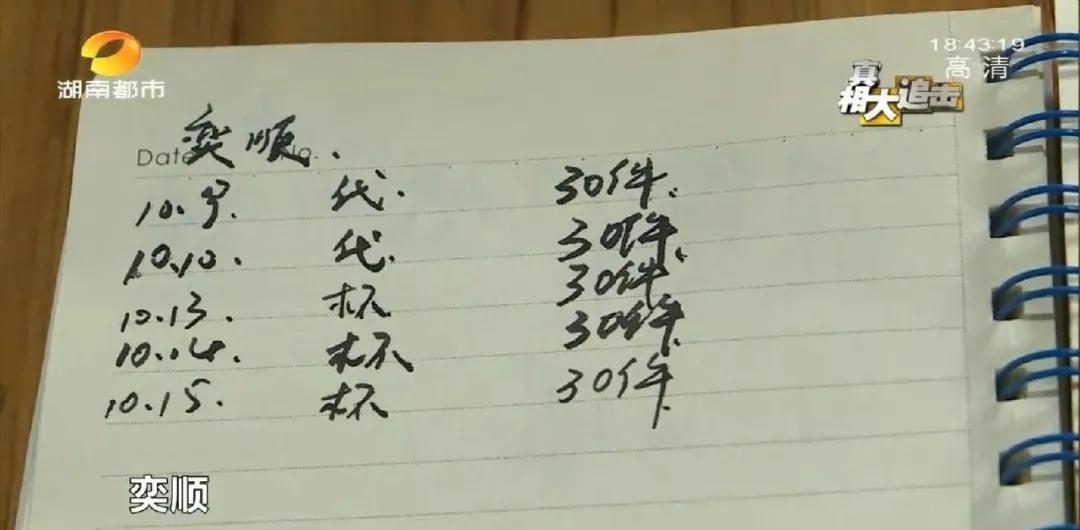 湖南都市
18:43:19
高清
真相大追击
Date
No.
奕顺.
10.9. 代. 30件.
10.10. 代. 30件.
10.13. 杯 30件
10.14. 杯 30件.
10.15. 杯 30件.
奕顺